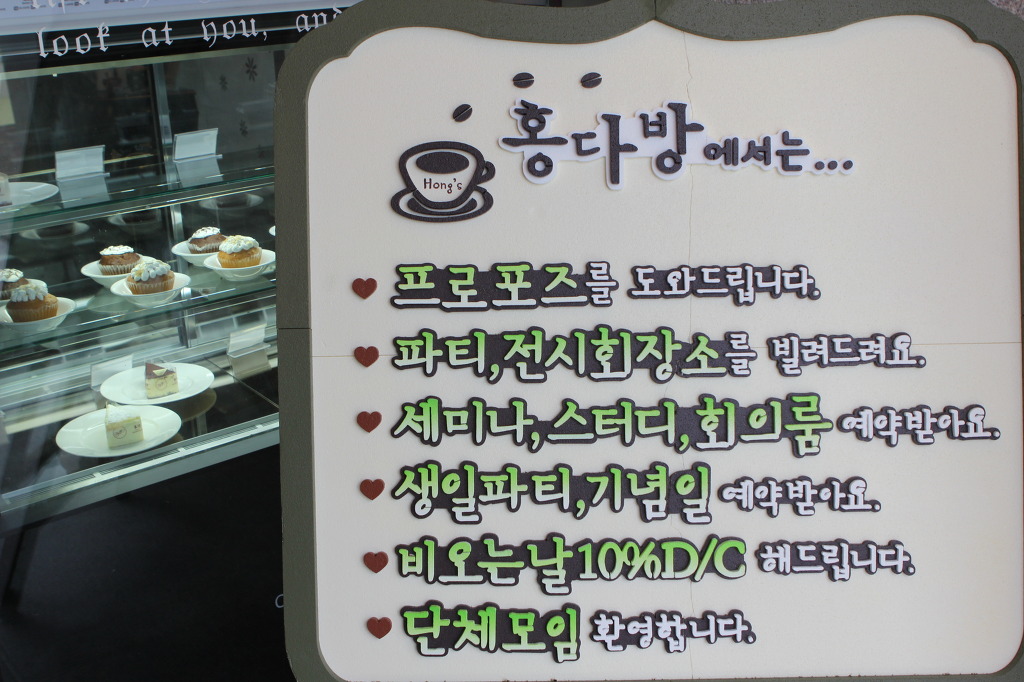 look at you, and
홍다방에서는...
Hong's
프로포즈를 도와드립니다.
파티,전시회장소를 빌려드려요.
세미나,스터디,회의룸 예약받아요.
생일파티,기념일 예약받아요.
비오는날10%D/C 해드립니다.
단체모임 환영합니다.